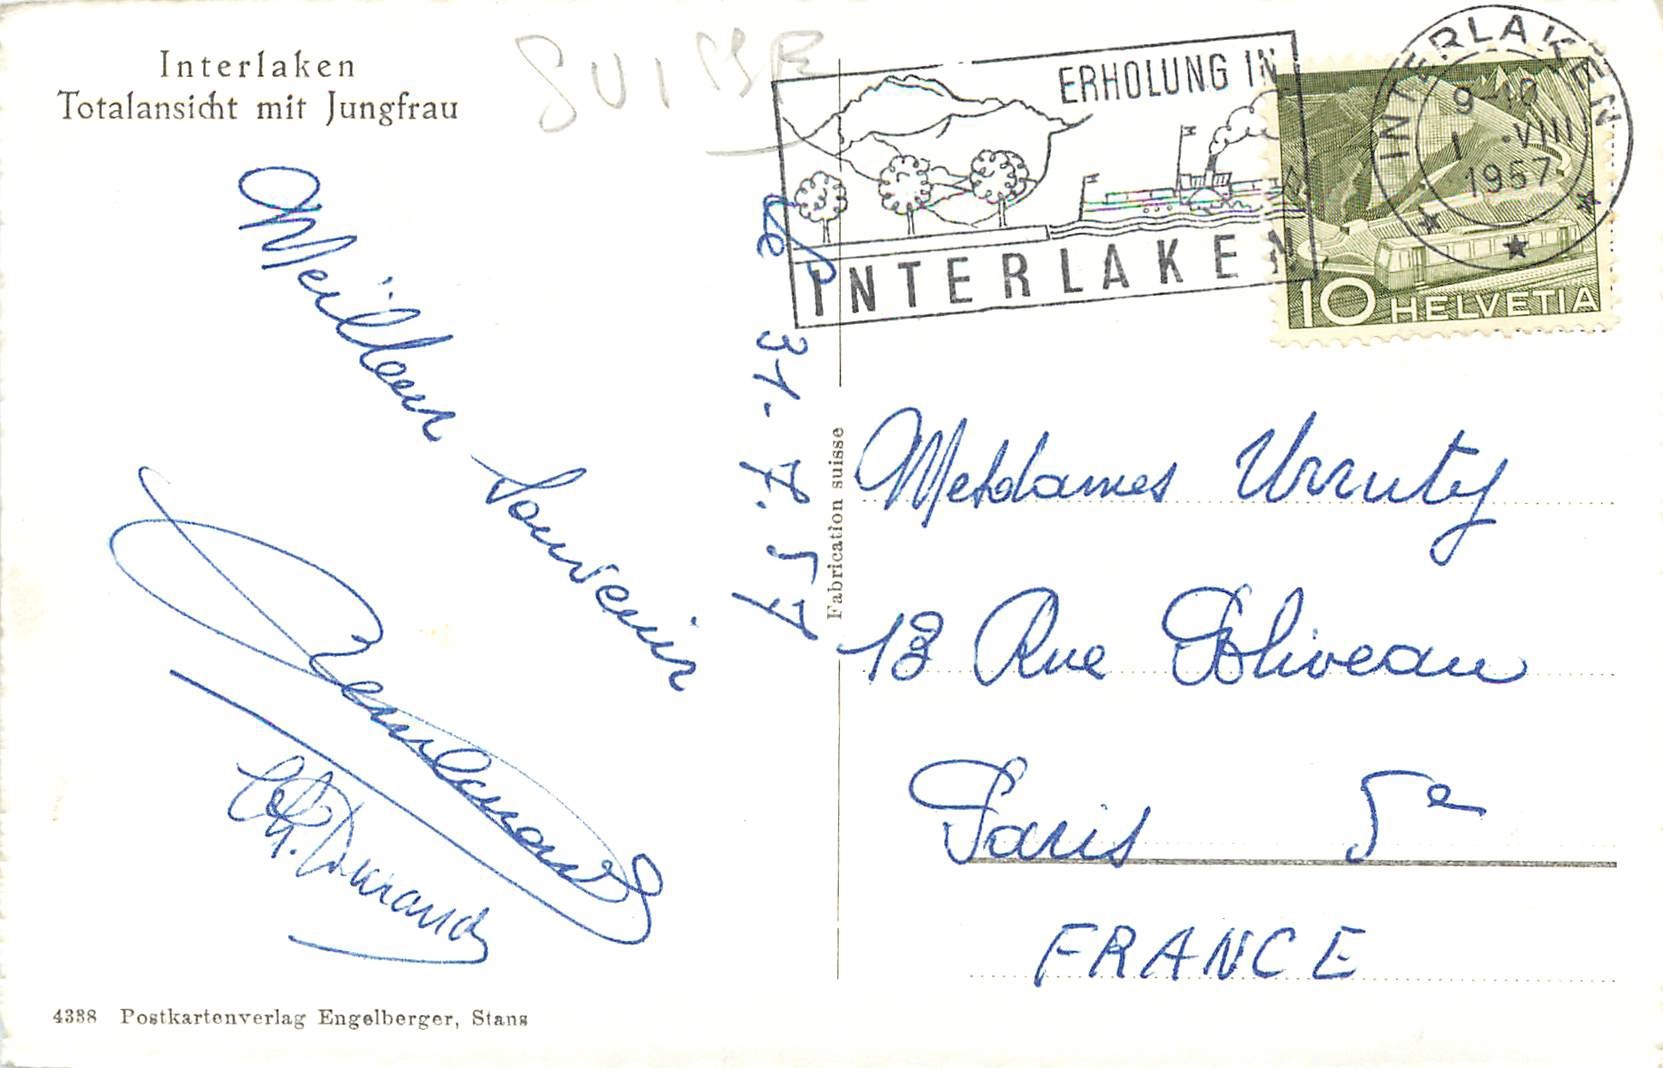 Interlaken
Totalansicht mit Jungfrau
SUISSE
ERHOLUNG IN
INTERLAKEN
INTERLAKEN
9-10
1.-VIII
1957
10 HELVETIA
Meilleur Souvenir
Ch. Durand
le 31.7.57
Fabrication suisse
Mesdames Urruty
13 Rue Poliveau
Paris 5e
FRANCE
4338 Postkartenverlag Engelberger, Stans